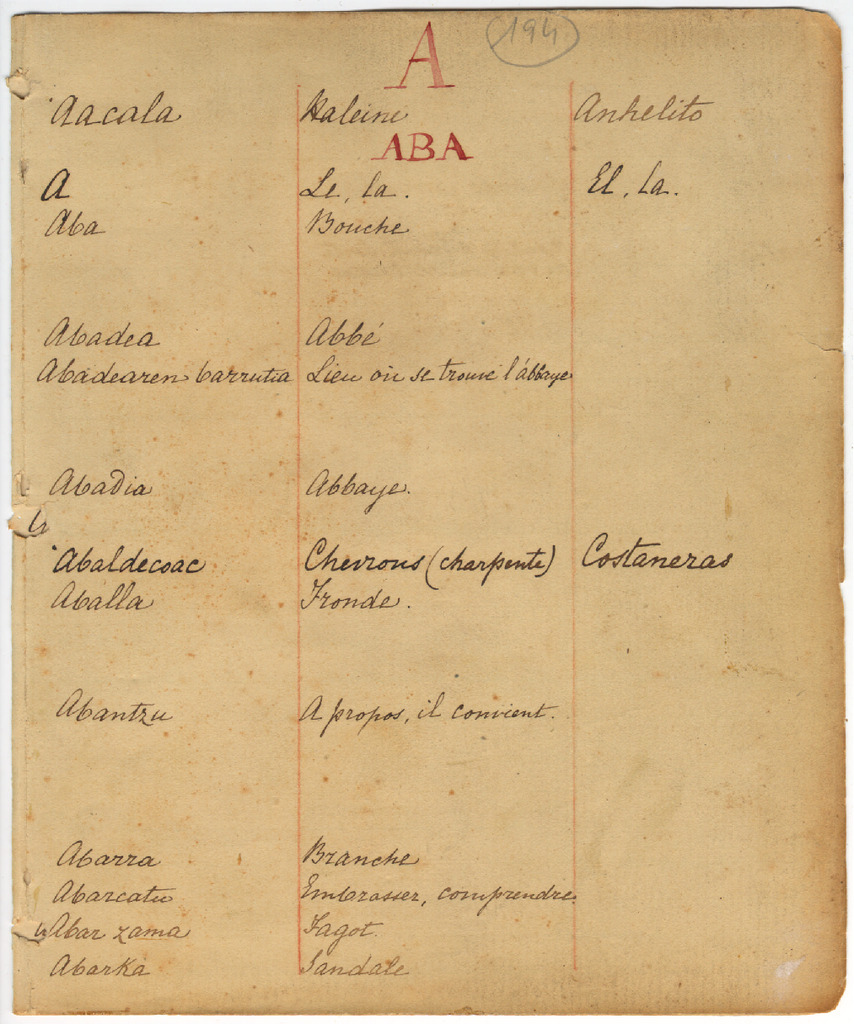 A 194
Aacala Haleine Anhelito
ABA
A Le, la. El, la.
Aba Bouche
Abadea Abbé
Abadearen barrutia Lieu où se trouve l'abbaye
Abadia Abbaye.
Abaldecoac Chevrons (charpente) Costaneras
Aballa Fronde.
Abantzu A propos, il convient.
Abarra Branche
Abarcatu Embrasser, comprendre
Abar zama Fagot.
Abarka Sandale